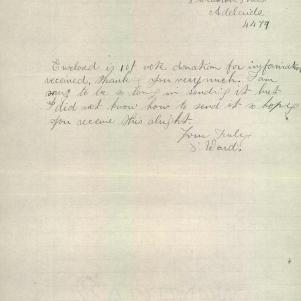 Adelaide
4479
Enclosed is 10/ note donation for information
received, thank you very much. I am
sorry to be so long in sending it but
I did not know how to send it so hope
you receive this alright.
Yours Truly
Ward.